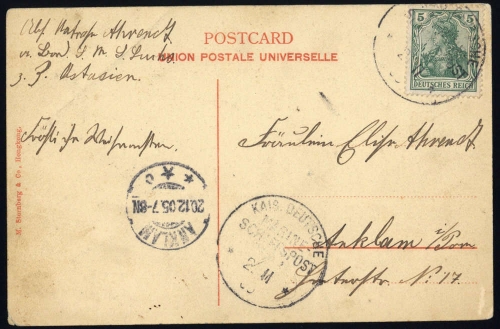 Abs. Matrose Ahrendt
an Bord S. M. S. Luchs
z. Z. Ostasien
POSTCARD
UNION POSTALE UNIVERSELLE
5 5
DEUTSCHES REICH
Fröhliche Weihnachten.
Fräulein Elise Ahrendt.
M. Sternberg & Co., Hongkong.
ANKLAM
20.12.05.7-8N.
KAIS. DEUTSCHE
MARINE-
SCHIFFSPOST
11
Anklam i/Pom
No. 17